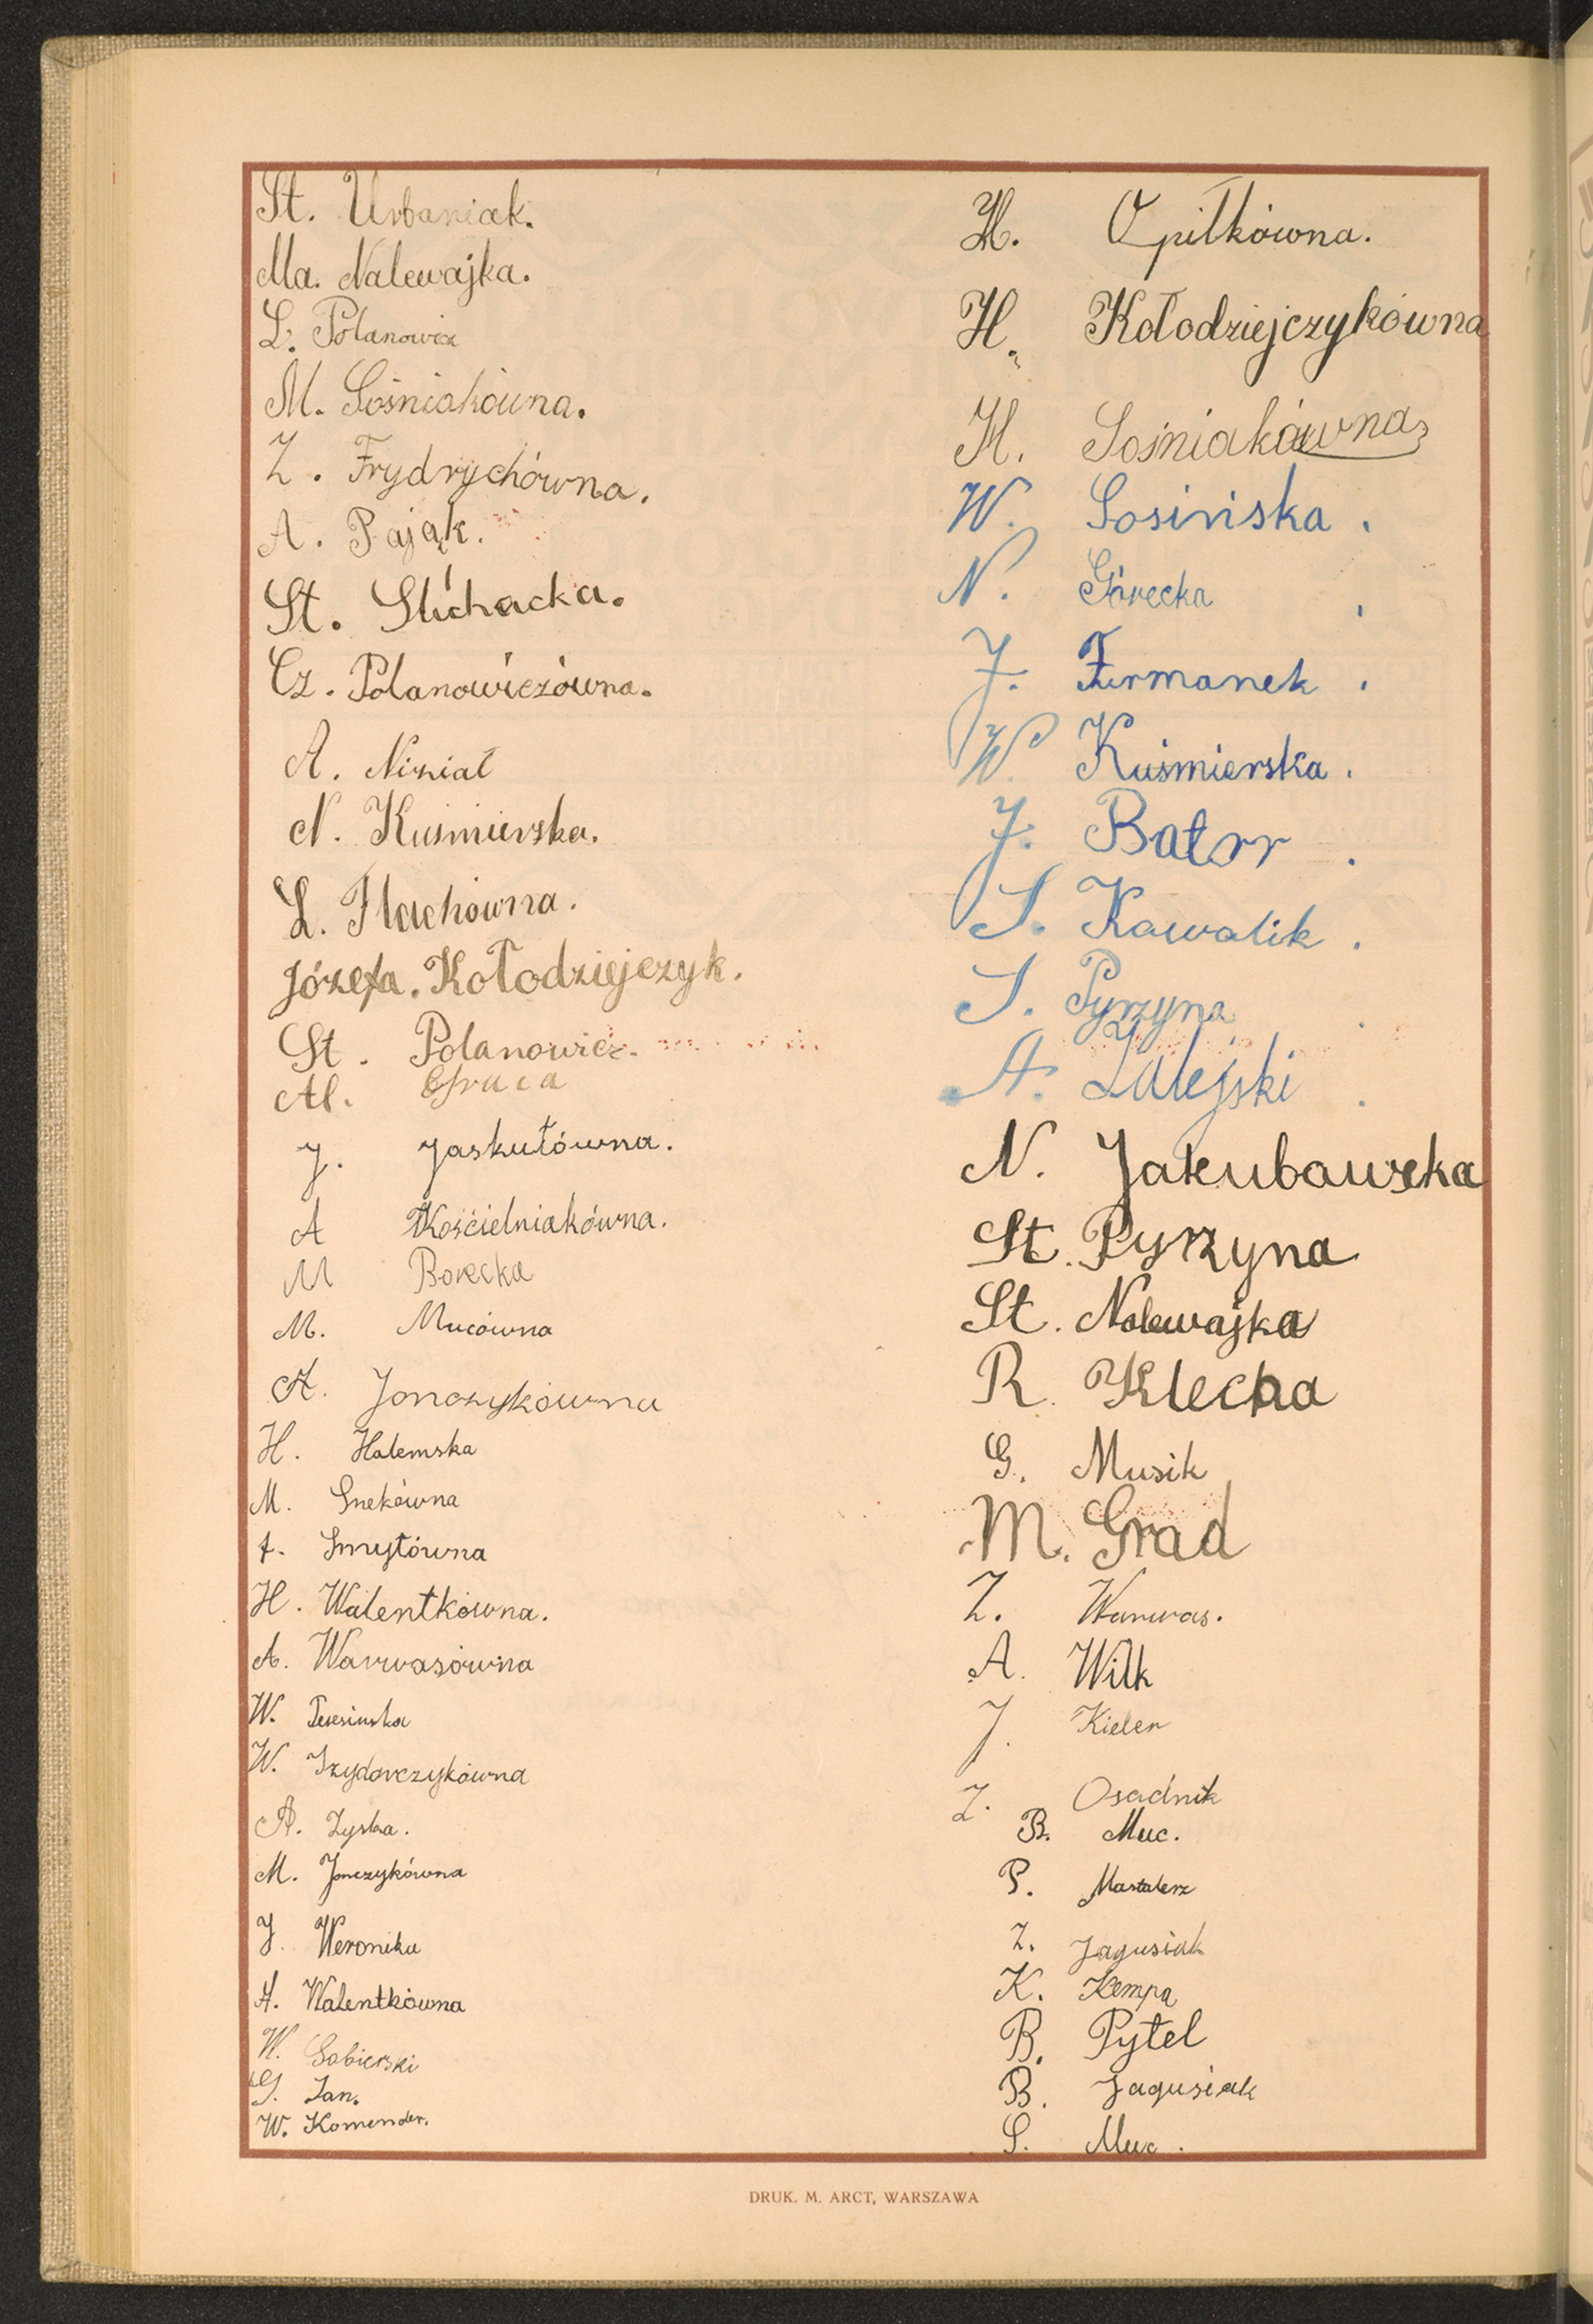 St. Urbaniak.
Ma. Nalewajka.
L. Polanowicz
M. Sośniakówna.
Z. Frydrychówna.
A. Pająk.
St. Slíchacka.
Cz. Polanowiczówna.
A. Niział
N. Kuśmierska.
L. Flachówna.
Józefa. Kołodziejczyk.
St. Polanowicz.
Al.
J. Jaskułówna.
A Kościelniakówna.
M Borecka
M. Mucówna
A. Jonczykówna
H. Halemska
M. Snekówna
f. Smytówna
H. Walentkówna.
A. Warwasówna
W.
W. Izydorczykówna
A. Zyska.
M. Jonczykówna
J. Weronika
A. Walentkówna
W. Sobierski
G. Jan.
W. Komender.
H. Opiłkówna.
H. Kołodziejczykówna
H. Sośniakówna
W. Sosińska.
N. Górecka
J. Furmanek.
W. Kuśmierska.
J. Batrr.
S. Kawalik.
S. Pyrzyna
A. Zalejski.
N. Jakubawska
St. Pyrzyna
St. Nalewajka
R. Klecha
G. Musik
M. Grad
Z. Warwas.
A. Wilk
J. Kieler
Z. Osadnik
B. Muc.
P. Mastalerz
Z. Jagusiak
K. Kempa
B. Pytel
B. Jagusiak
S. Muc.
DRUK. M. ARCT, WARSZAWA